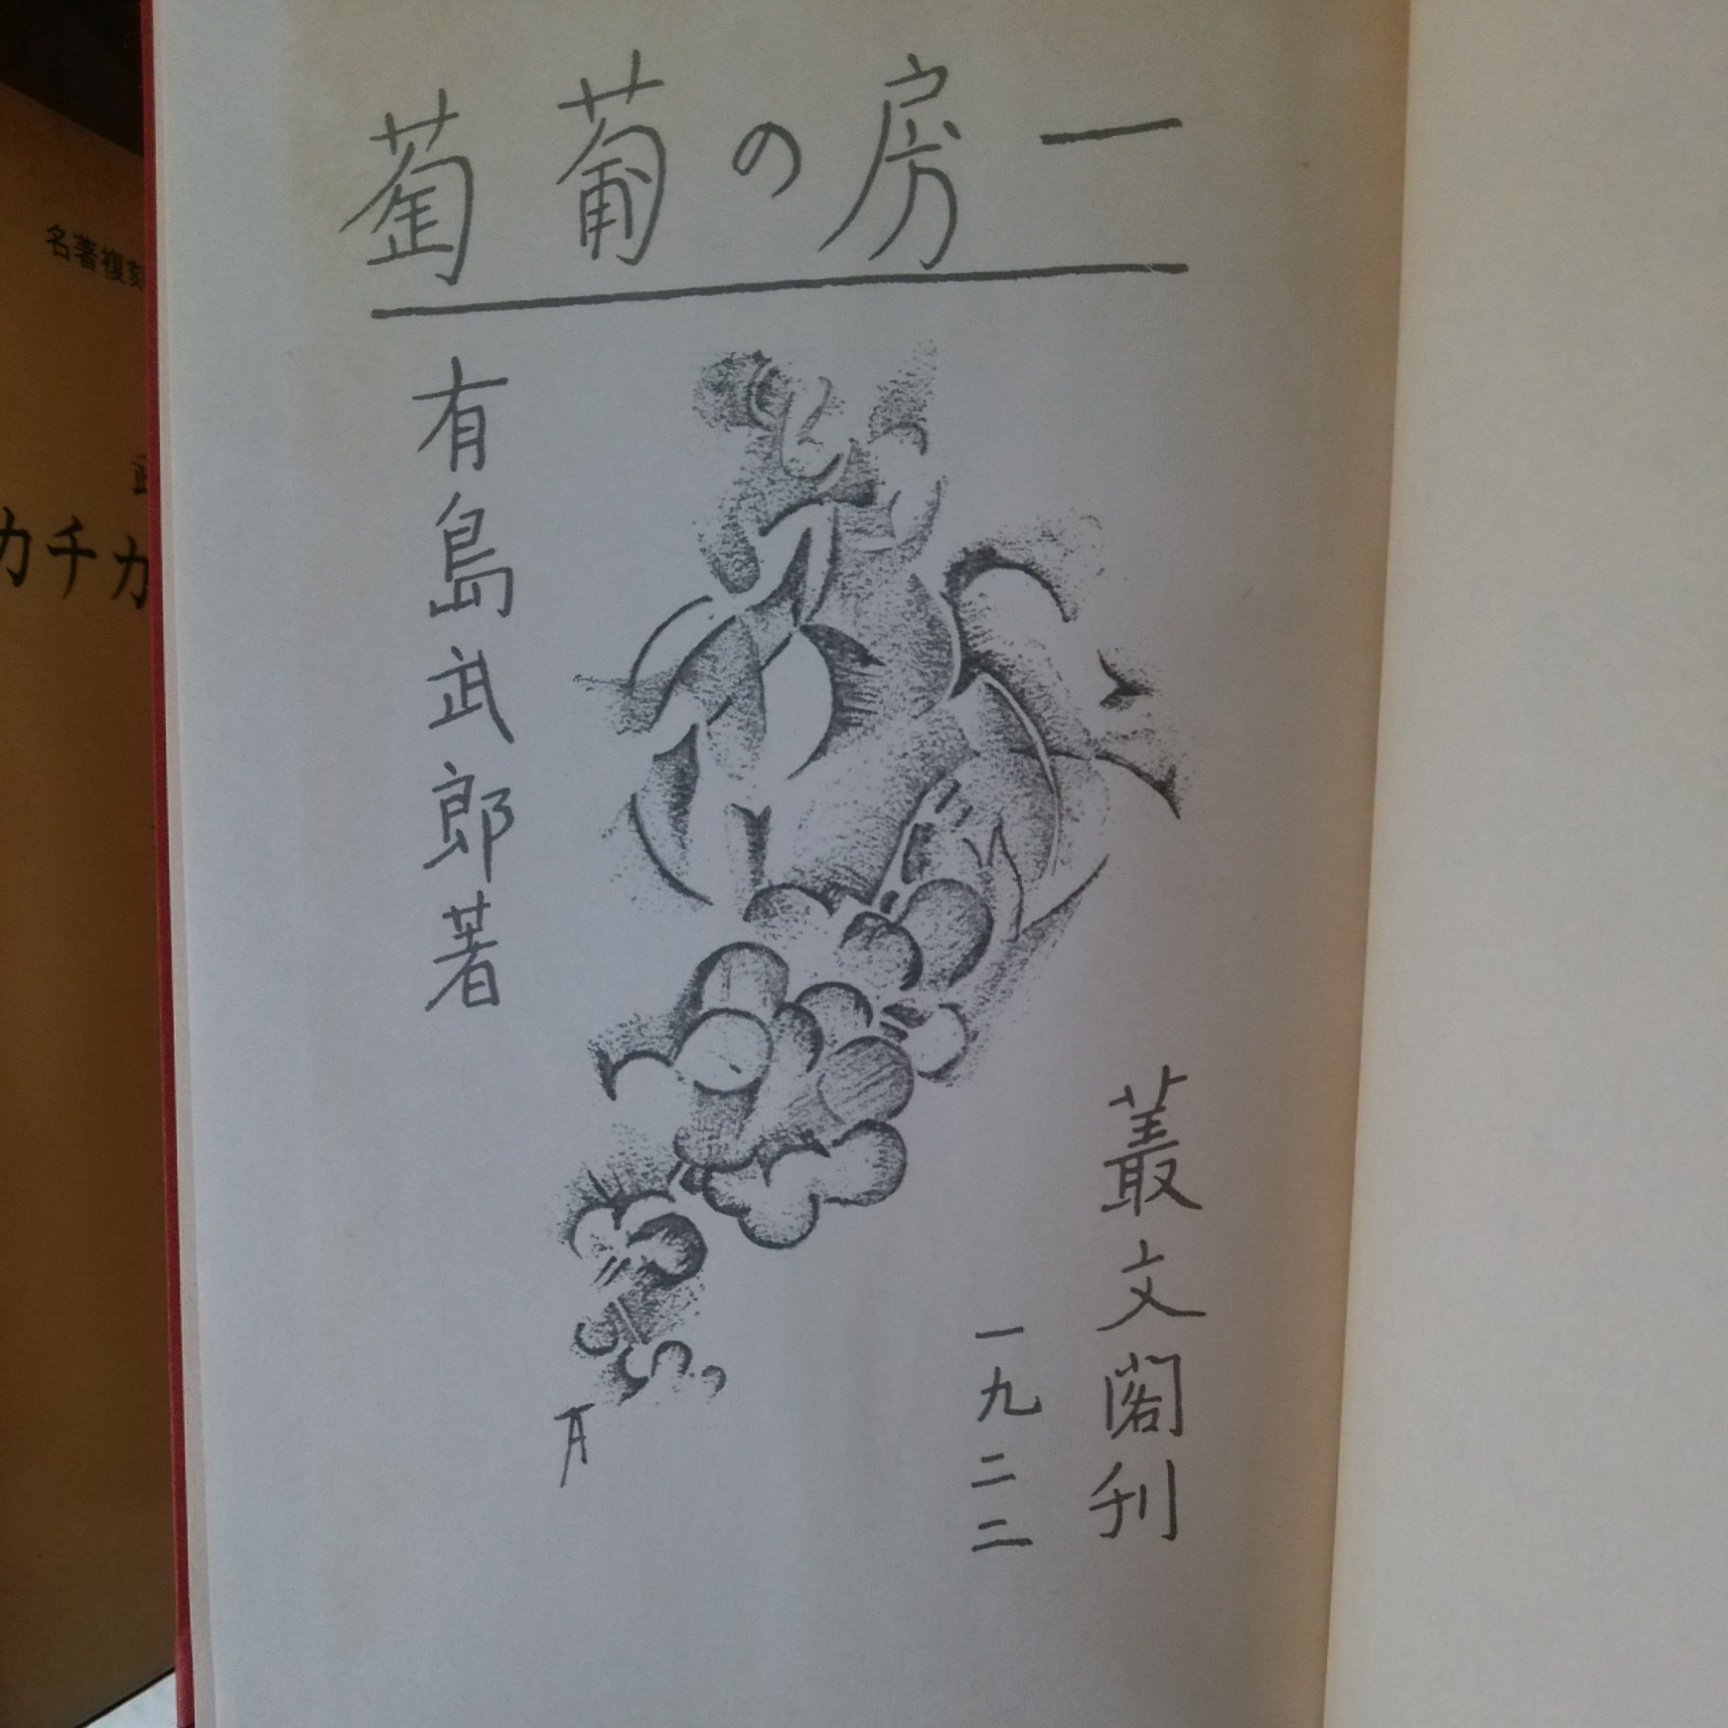 一房の葡萄
有島武郎著
叢文閣刊
一九二二
A
名著複刻
カチカ